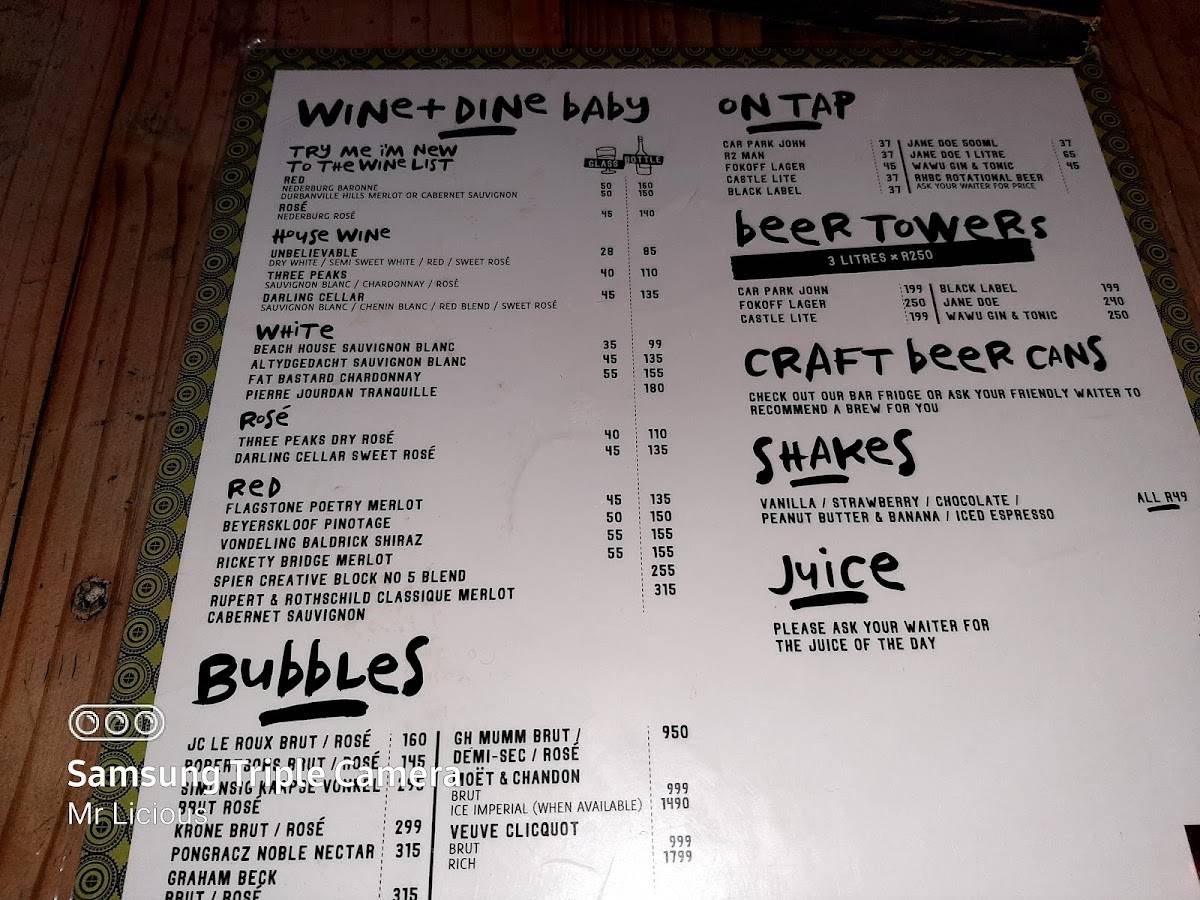 WINE + DINE BABY
TRY ME I'M NEW
TO THE WINE LIST
GLASS BOTTLE
RED
NEDERBURG BARONNE 50 160
DURBANVILLE HILLS MERLOT OR CABERNET SAUVIGNON 50 150
ROSÉ
NEDERBURG ROSÉ 45 140
HOUSE WINE
UNBELIEVABLE 28 85
DRY WHITE / SEMI SWEET WHITE / RED / SWEET ROSÉ
THREE PEAKS 40 110
SAUVIGNON BLANC / CHARDONNAY / ROSÉ
DARLING CELLAR 45 135
SAUVIGNON BLANC / CHENIN BLANC / RED BLEND / SWEET ROSÉ
WHITE
BEACH HOUSE SAUVIGNON BLANC 35 99
ALTYDGEDACHT SAUVIGNON BLANC 45 135
FAT BASTARD CHARDONNAY 55 155
PIERRE JOURDAN TRANQUILLE 180
ROSÉ
THREE PEAKS DRY ROSÉ 40 110
DARLING CELLAR SWEET ROSÉ 45 135
RED
FLAGSTONE POETRY MERLOT 45 135
BEYERSKLOOF PINOTAGE 50 150
VONDELING BALDRICK SHIRAZ 55 155
RICKETY BRIDGE MERLOT 55 155
SPIER CREATIVE BLOCK NO 5 BLEND 255
RUPERT & ROTHSCHILD CLASSIQUE MERLOT 315
CABERNET SAUVIGNON
BUBBLES
JC LE ROUX BRUT / ROSÉ 160
BRUT / ROSÉ 145
SIMONSIG KAAPSE VONKEL
BRUT ROSÉ
KRONE BRUT / ROSÉ 299
PONGRACZ NOBLE NECTAR 315
GRAHAM BECK
BRUT / ROSÉ 315
GH MUMM BRUT / 950
DEMI-SEC / ROSÉ
MOËT & CHANDON
BRUT 999
ICE IMPERIAL (WHEN AVAILABLE) 1490
VEUVE CLICQUOT
BRUT 999
RICH 1799
ON TAP
CAR PARK JOHN 37
R2 MAN 37
FOKOFF LAGER 45
CASTLE LITE 37
BLACK LABEL 37
JANE DOE 500ML 37
JANE DOE 1 LITRE 65
WAWU GIN & TONIC 45
RHBC ROTATIONAL BEER
ASK YOUR WAITER FOR PRICE
BEER TOWERS
3 LITRES × R250
CAR PARK JOHN 199
FOKOFF LAGER 250
CASTLE LITE 199
BLACK LABEL 199
JANE DOE 240
WAWU GIN & TONIC 250
CRAFT BEER CANS
CHECK OUT OUR BAR FRIDGE OR ASK YOUR FRIENDLY WAITER TO
RECOMMEND A BREW FOR YOU
SHAKES
VANILLA / STRAWBERRY / CHOCOLATE / ALL R49
PEANUT BUTTER & BANANA / ICED ESPRESSO
JUICE
PLEASE ASK YOUR WAITER FOR
THE JUICE OF THE DAY
Samsung Triple Camera
Mr Licious